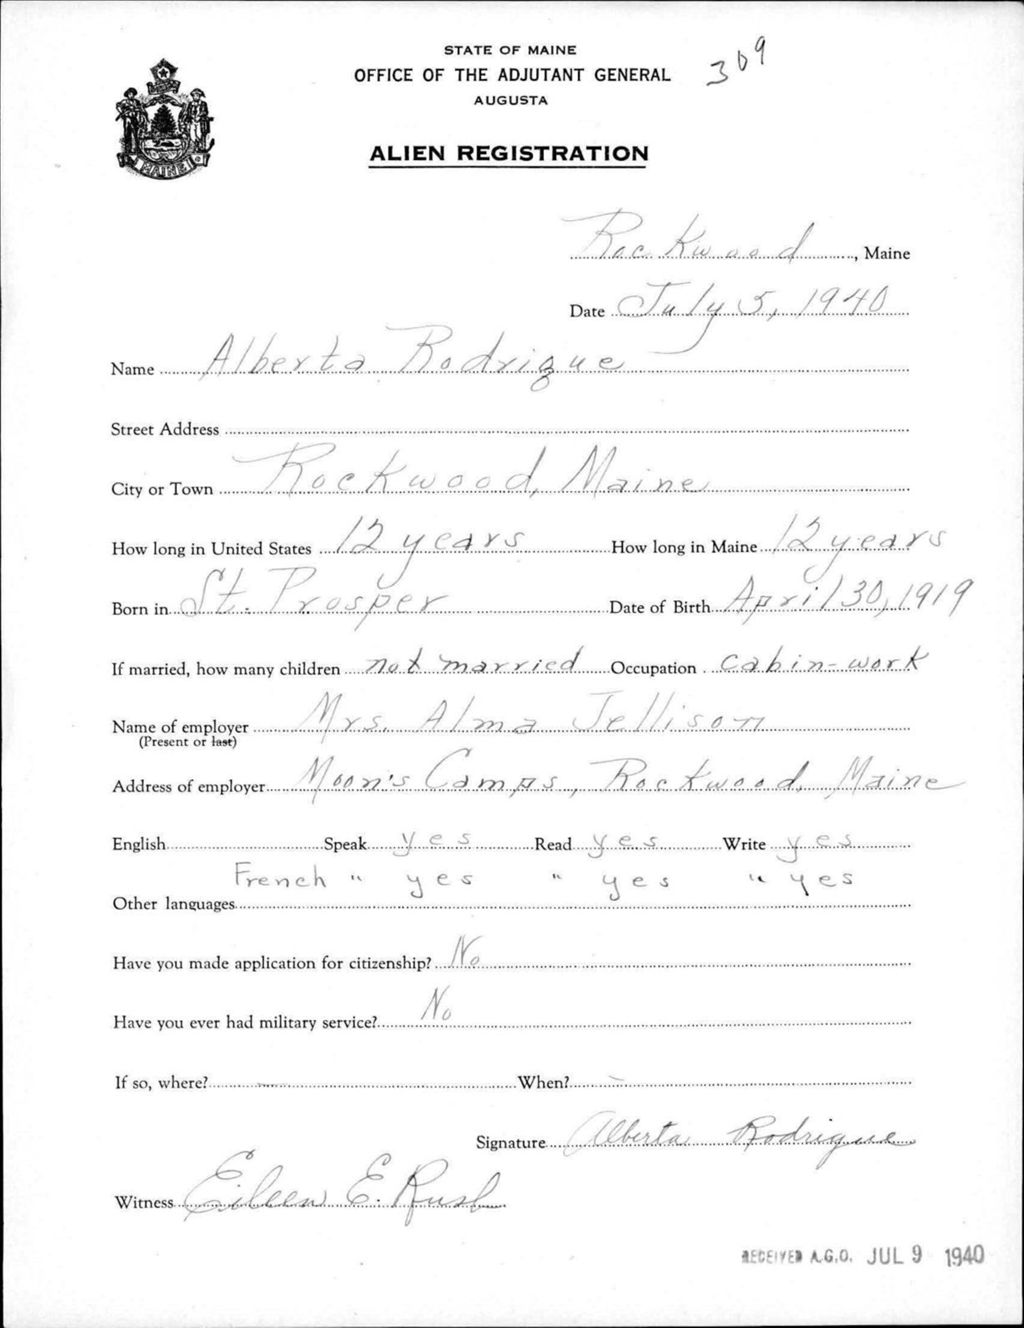 STATE OF MAINE
OFFICE OF THE ADJUTANT GENERAL
AUGUSTA
309
ALIEN REGISTRATION
MAINE
Rockwood, Maine
Date July 5, 1940
Name Alberta Rodrigue
Street Address
City or Town Rockwood, Maine
How long in United States 12 years How long in Maine 12 years
Born in St. Prosper Date of Birth April 30, 1919
If married, how many children not married Occupation cabin-work
Name of employer Mrs. Alma Jellison
(Present or last)
Address of employer Moon's Camps, Rockwood, Maine
English Speak yes Read yes Write yes
French " yes " yes " yes
Other languages
Have you made application for citizenship? No
Have you ever had military service? No
If so, where? — When? —
Signature Alberta Rodrigue
Witness Eileen E. Rush
RECEIVED A.G.O. JUL 9 1940